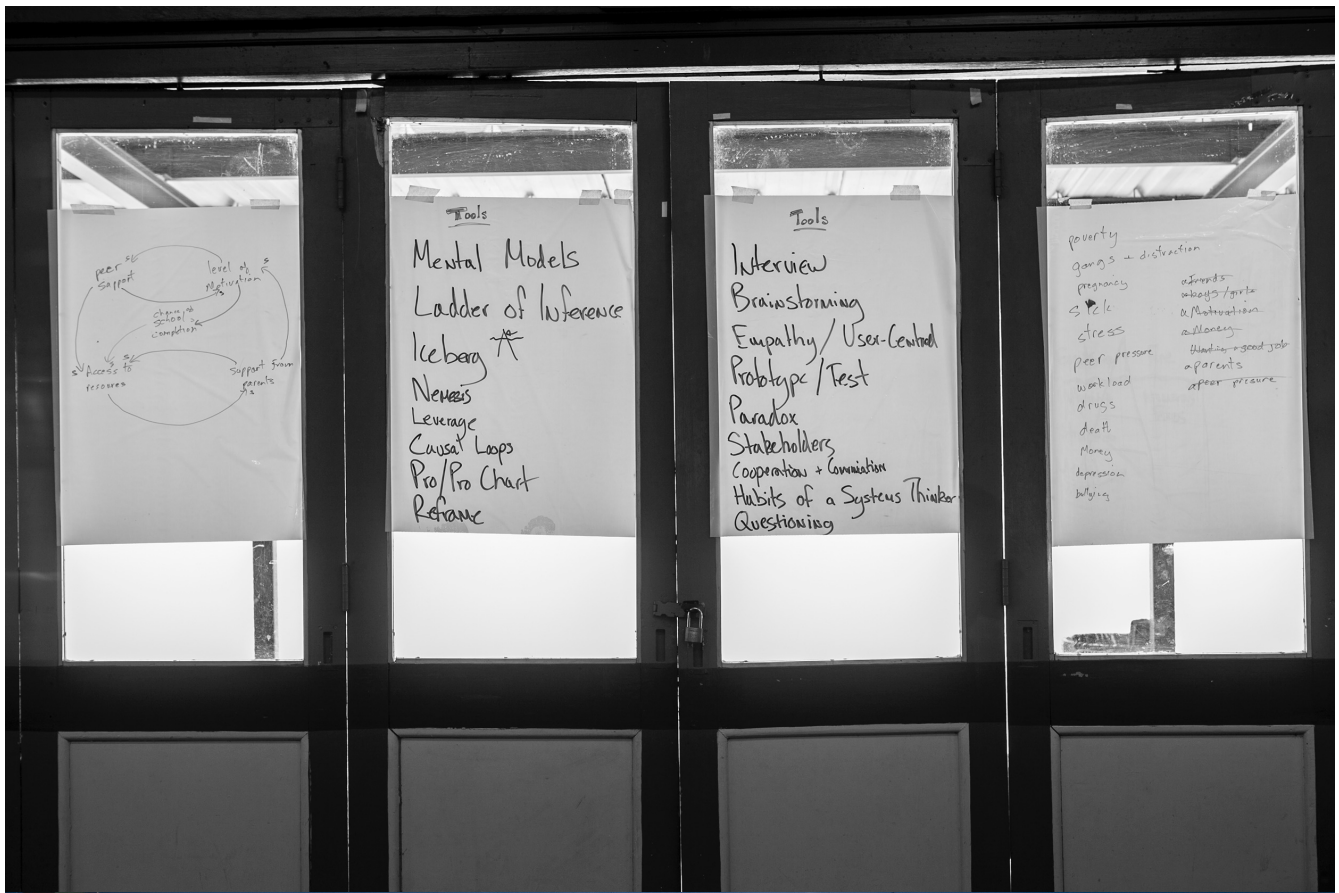 peer
support
level of
Motivation
s
s
chance of
school
completion
s
s Access to
resources
Support from
parents
s
Tools
Mental Models
Ladder of Inference
Iceberg
Nemesis
Leverage
Causal Loops
Pro/Pro Chart
Reframe
Tools
Interview
Brainstorming
Empathy/User-Centred
Prototype/Test
Paradox
Stakeholders
Cooperation +
Habits of a Systems Thinker
Questioning
poverty
gangs + distraction
pregnancy
sick
stress
peer pressure
workload
drugs
death
Money
depression
bullying
friends
boys/girls
Motivation
Money
good job
parents
peer presure